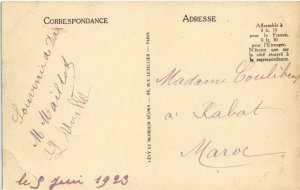 CORRESPONDANCE
Souvenir de
M Maillot
le 5 Juin 1923
LÉVY ET NEURDEIN RÉUNIS - 44, RUE LETELLIER - PARIS
ADRESSE
Affranchir à
pour la France,
pour l'Étranger.
N'écrire que sur
le côté réservé à
la correspondance.
Madame
à Rabat
Maroc